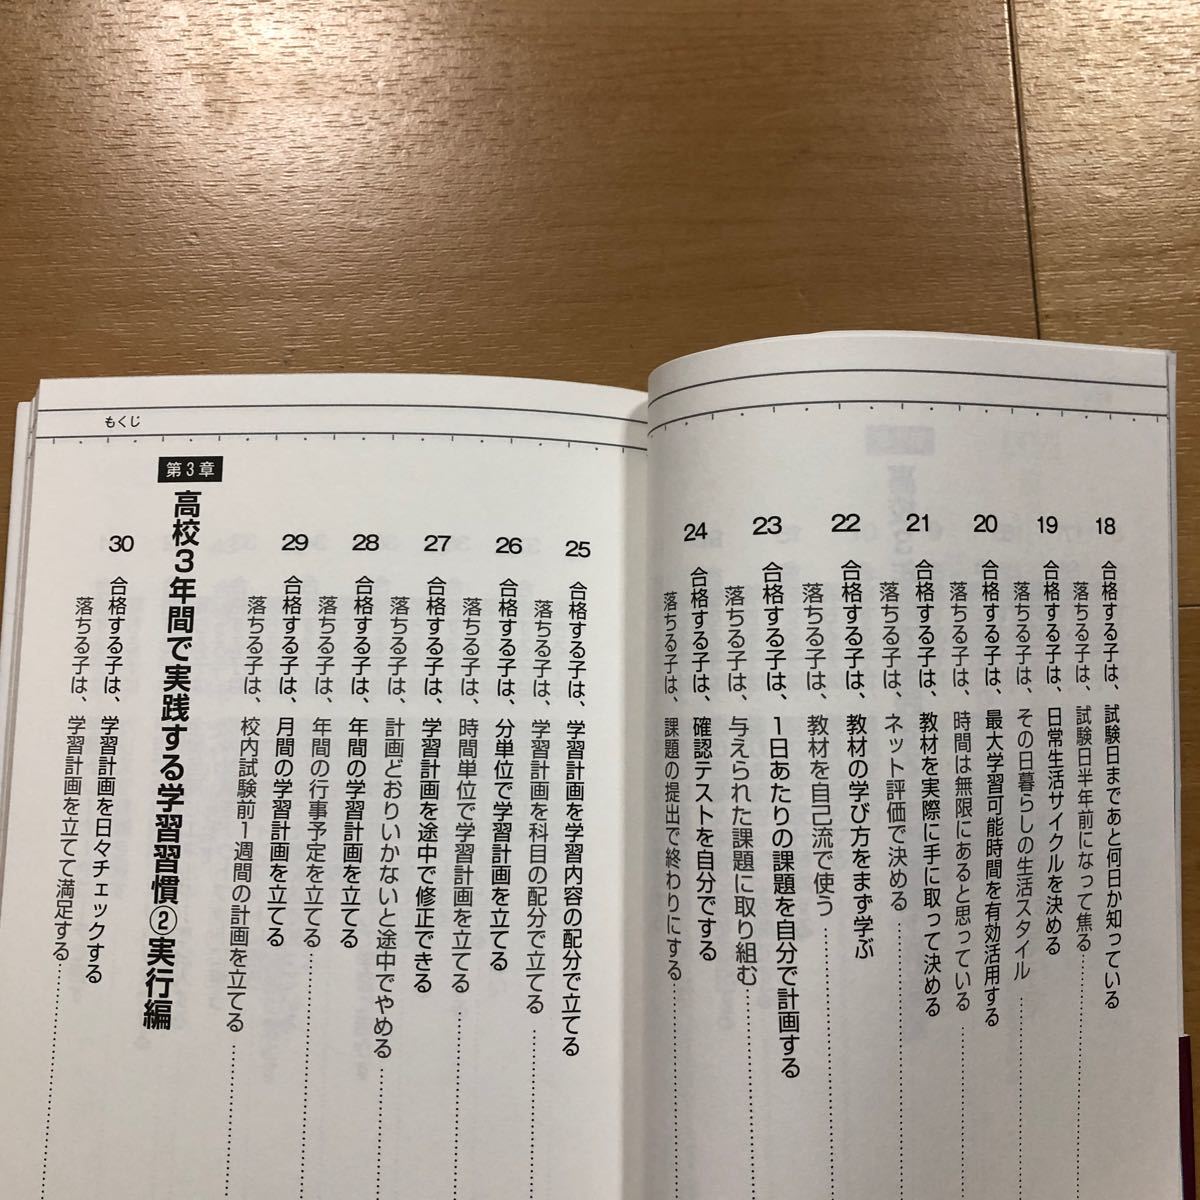 18 合格する子は、試験日まであと何日か知っている
落ちる子は、試験日半年前になって焦る
19 合格する子は、日常生活サイクルを決める
落ちる子は、その日暮らしの生活スタイル
20 合格する子は、最大学習可能時間を有効活用する
落ちる子は、時間は無限にあると思っている
21 合格する子は、教材を実際に手に取って決める
落ちる子は、ネット評価で決める
22 合格する子は、教材の学び方をまず学ぶ
落ちる子は、教材を自己流で使う
23 合格する子は、1日あたりの課題を自分で計画する
落ちる子は、与えられた課題に取り組む
24 合格する子は、確認テストを自分でする
落ちる子は、課題の提出で終わりにする
もくじ
25 合格する子は、学習計画を学習内容の配分で立てる
落ちる子は、学習計画を科目の配分で立てる
26 合格する子は、分単位で学習計画を立てる
落ちる子は、時間単位で学習計画を立てる
27 合格する子は、学習計画を途中で修正できる
落ちる子は、計画どおりいかないと途中でやめる
28 合格する子は、年間の学習計画を立てる
落ちる子は、年間の行事予定を立てる
29 合格する子は、月間の学習計画を立てる
落ちる子は、校内試験前1週間の計画を立てる
第3章 高校3年間で実践する学習習慣②実行編
30 合格する子は、学習計画を日々チェックする
落ちる子は、学習計画を立てて満足する